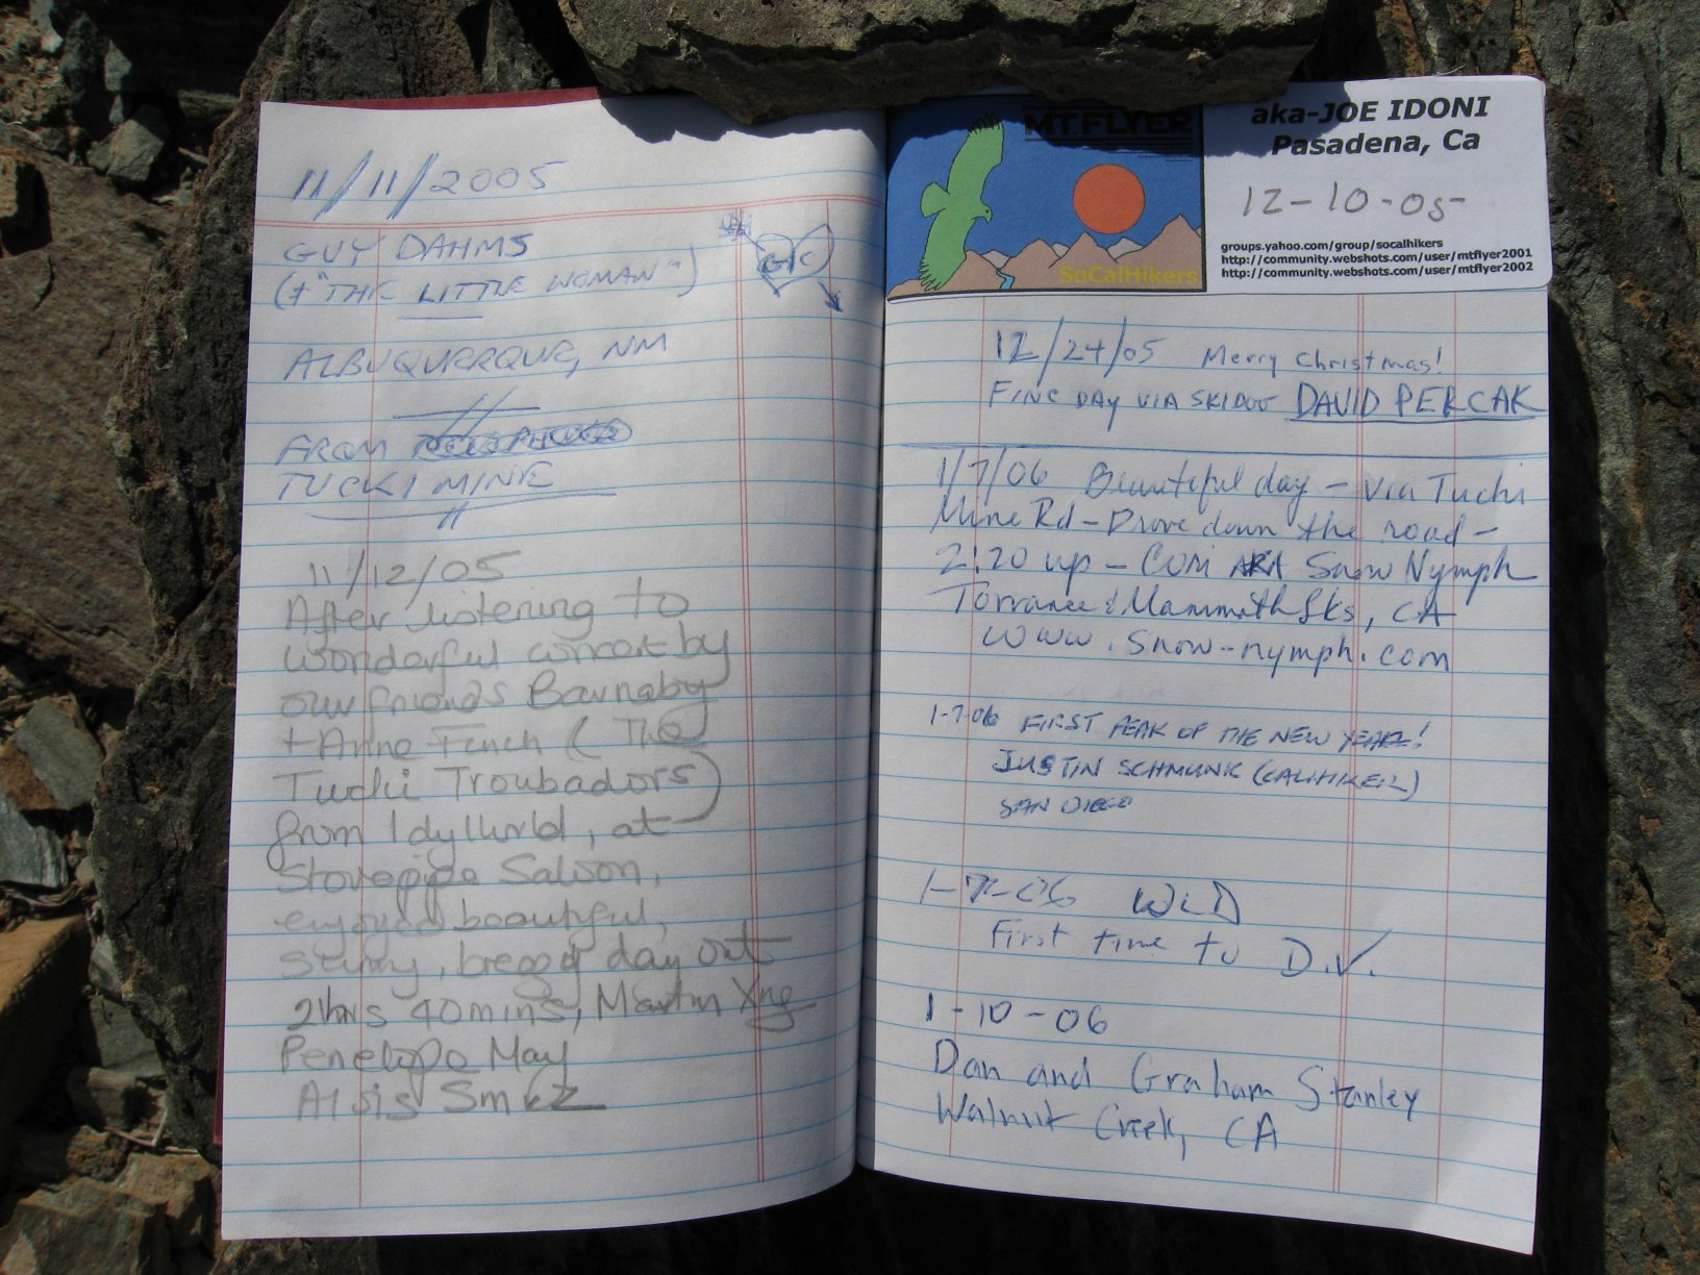 11/11/2005
GUY DAHMS
(+ "THE LITTLE WOMAN")
G C
ALBUQUERQUE, NM
FROM
TUCKI MINE
11/12/05
After listening to
wonderful concert by
our friends Barnaby
+ Anne Finch (The
Tucki Troubadors)
from Idyllwild, at
Stovepipe Saloon,
enjoyed beautiful,
sunny, breezy day out
2hrs 40mins, Martin
Penelope May
MT.FLYER
SoCalHikers
aka-JOE IDONI
Pasadena, Ca
12-10-05-
groups.yahoo.com/group/socalhikers
http://community.webshots.com/user/mtflyer2001
http://community.webshots.com/user/mtflyer2002
12/24/05 Merry Christmas!
FINE DAY VIA SKIDOO DAVID PERCAK
1/7/06 Beautiful day - via Tucki
Mine Rd - Drove down the road -
2:20 up - AKA Snow Nymph
Torrance & Mammoth Lks, CA
www.snow-nymph.com
1-7-06 FIRST PEAK OF THE NEW YEAR!
JUSTIN SCHMUNK (CALIHIKER)
SAN DIEGO
1-7-06
First time to D.V.
1-10-06
Dan and Graham Stanley
Walnut Creek, CA